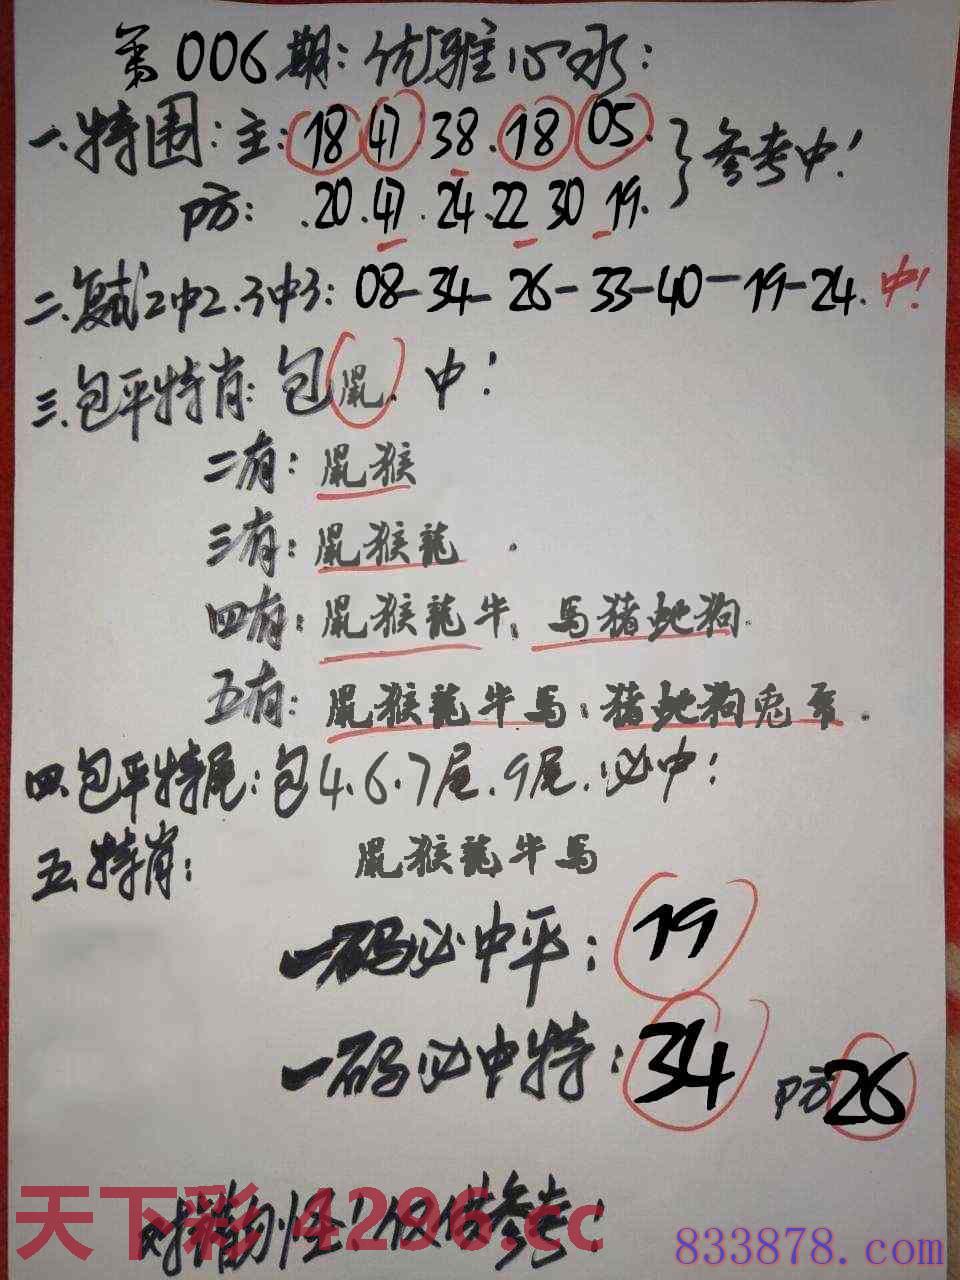 第006期:优雅心水:
一.特围:主:18 47.38.18 05.}参考中!
防:.20.47.24.22 30 19.
二.复试2中2.3中3:08-34-26-33-40-19-24.中!
三.包平特肖:包鼠.中!
二有:鼠猴
三有:鼠猴龍.
四有:鼠猴龍牛.馬猪蛇狗.
五有:鼠猴龍牛馬:猪蛇狗兎.
四.包平特尾:包4.6.7尾.9尾.必中:
五.特肖:鼠猴龍牛馬
一码必中平:19
一码必中特:34 防26
天下彩 4296.cc
!仅供参考!
833878.com